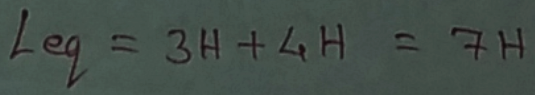 Leq = 3H + 4H = 7H